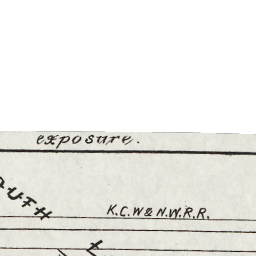 exposure.
OUTH
K.C.W & N.W.R.R.